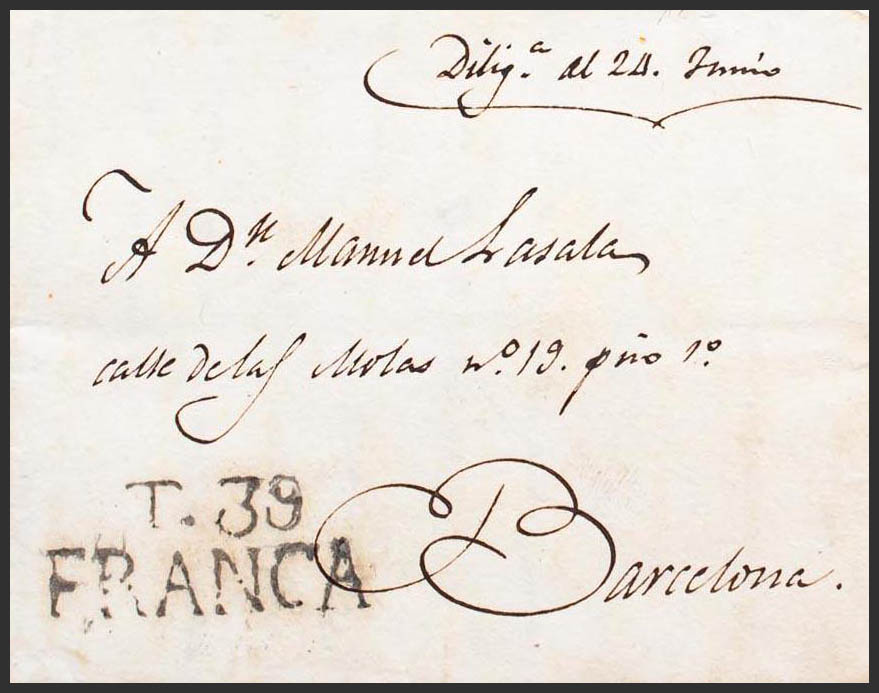 Dilig.ª al 24. Junio
A Dn. Manuel Lasala
calle de las Molas nº. 19. piso 1º.
T. 39
FRANCA
Barcelona.